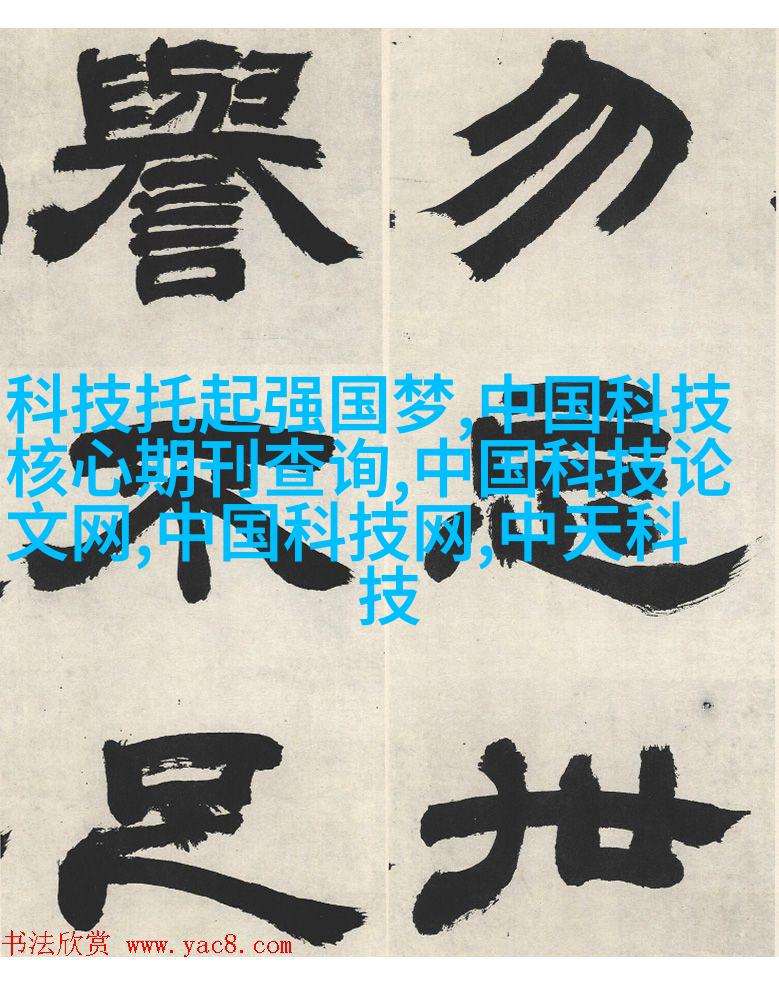 勿世
譽不足
科技托起强国梦,中国科技
核心期刊查询,中国科技论
文网,中国科技网,中天科
技
书法欣赏 www.yac8.com